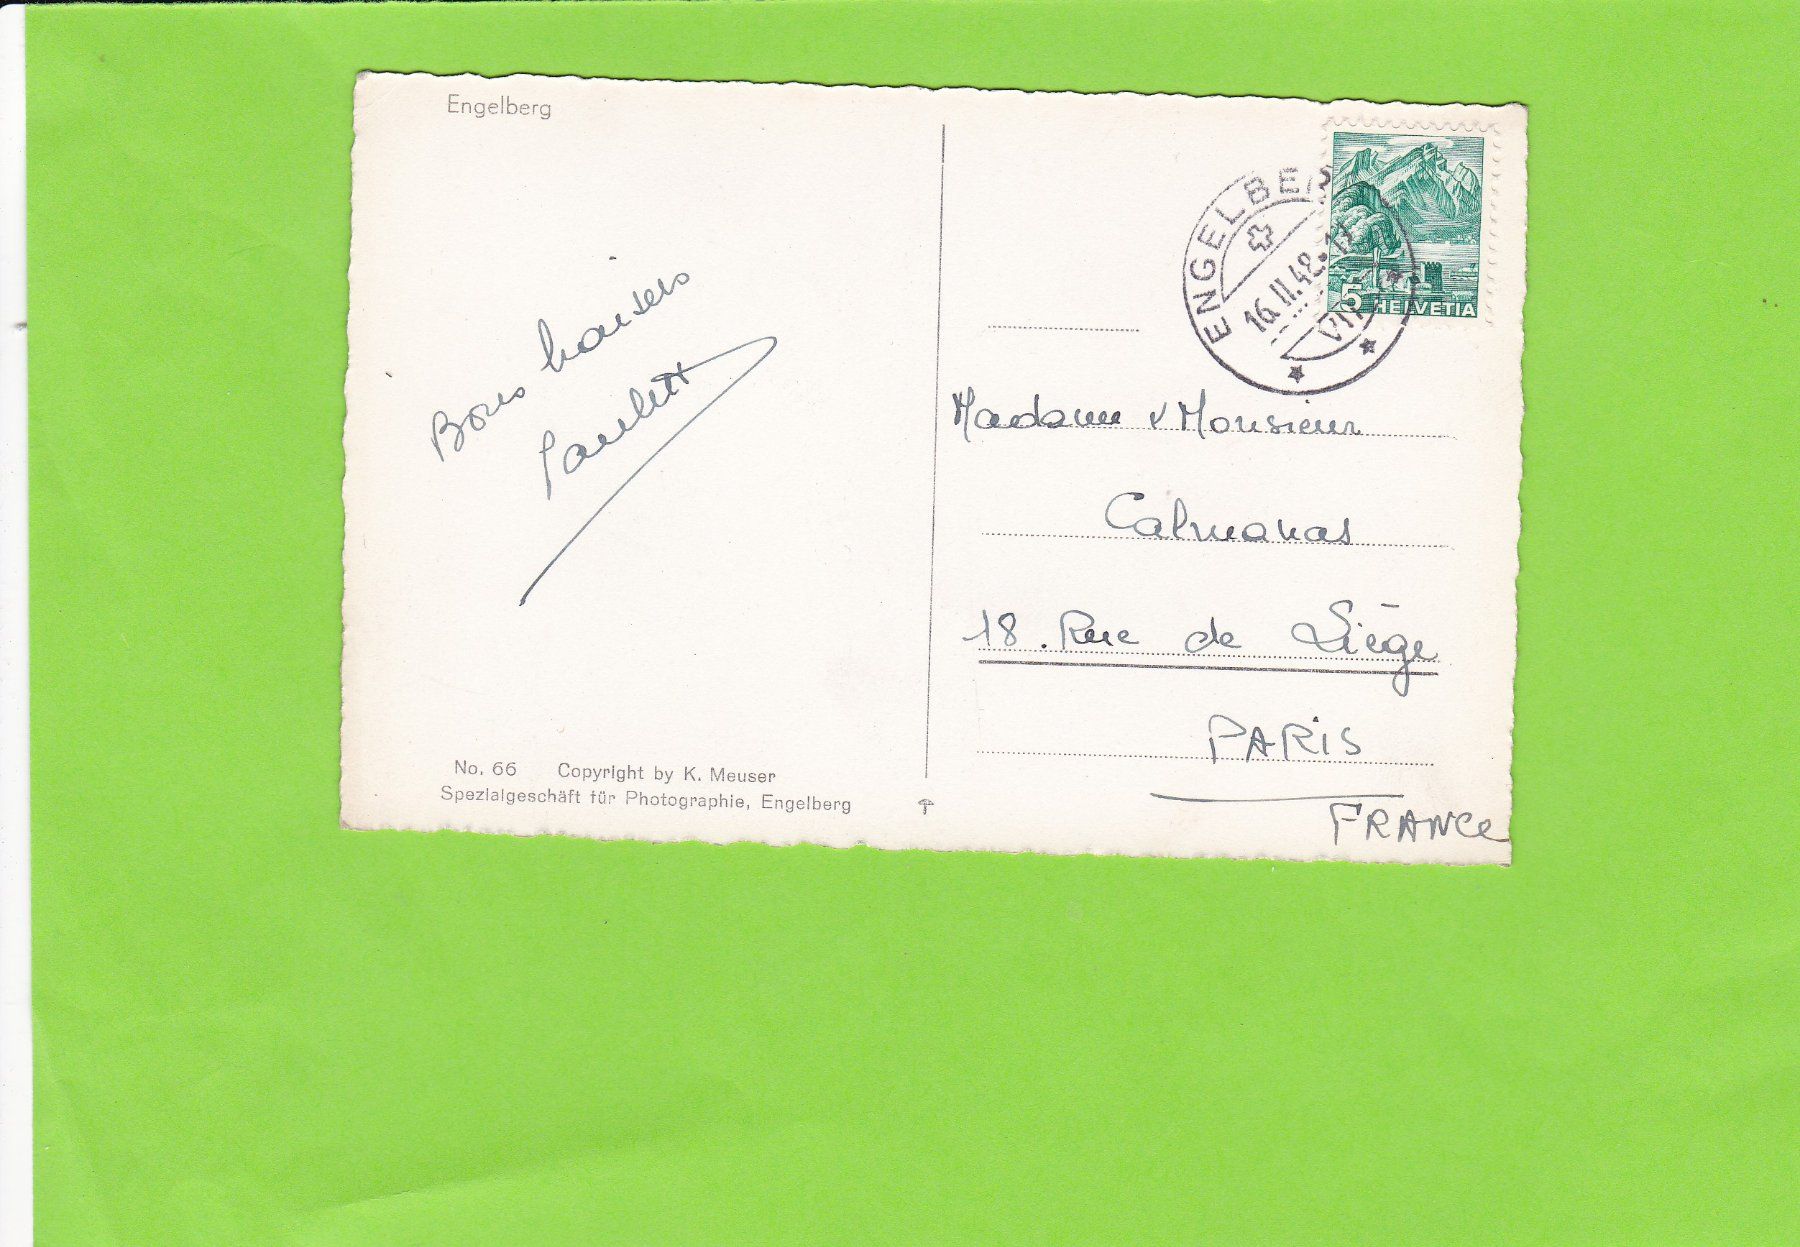 Engelberg
ENGELBER
16.II.48.17
5 HELVETIA
Bons baisers
Paulette
Madame & Monsieur
Calmanas
18. Rue de Liège
PARIS
FRANCE
No. 66 Copyright by K. Meuser
Spezialgeschäft für Photographie, Engelberg